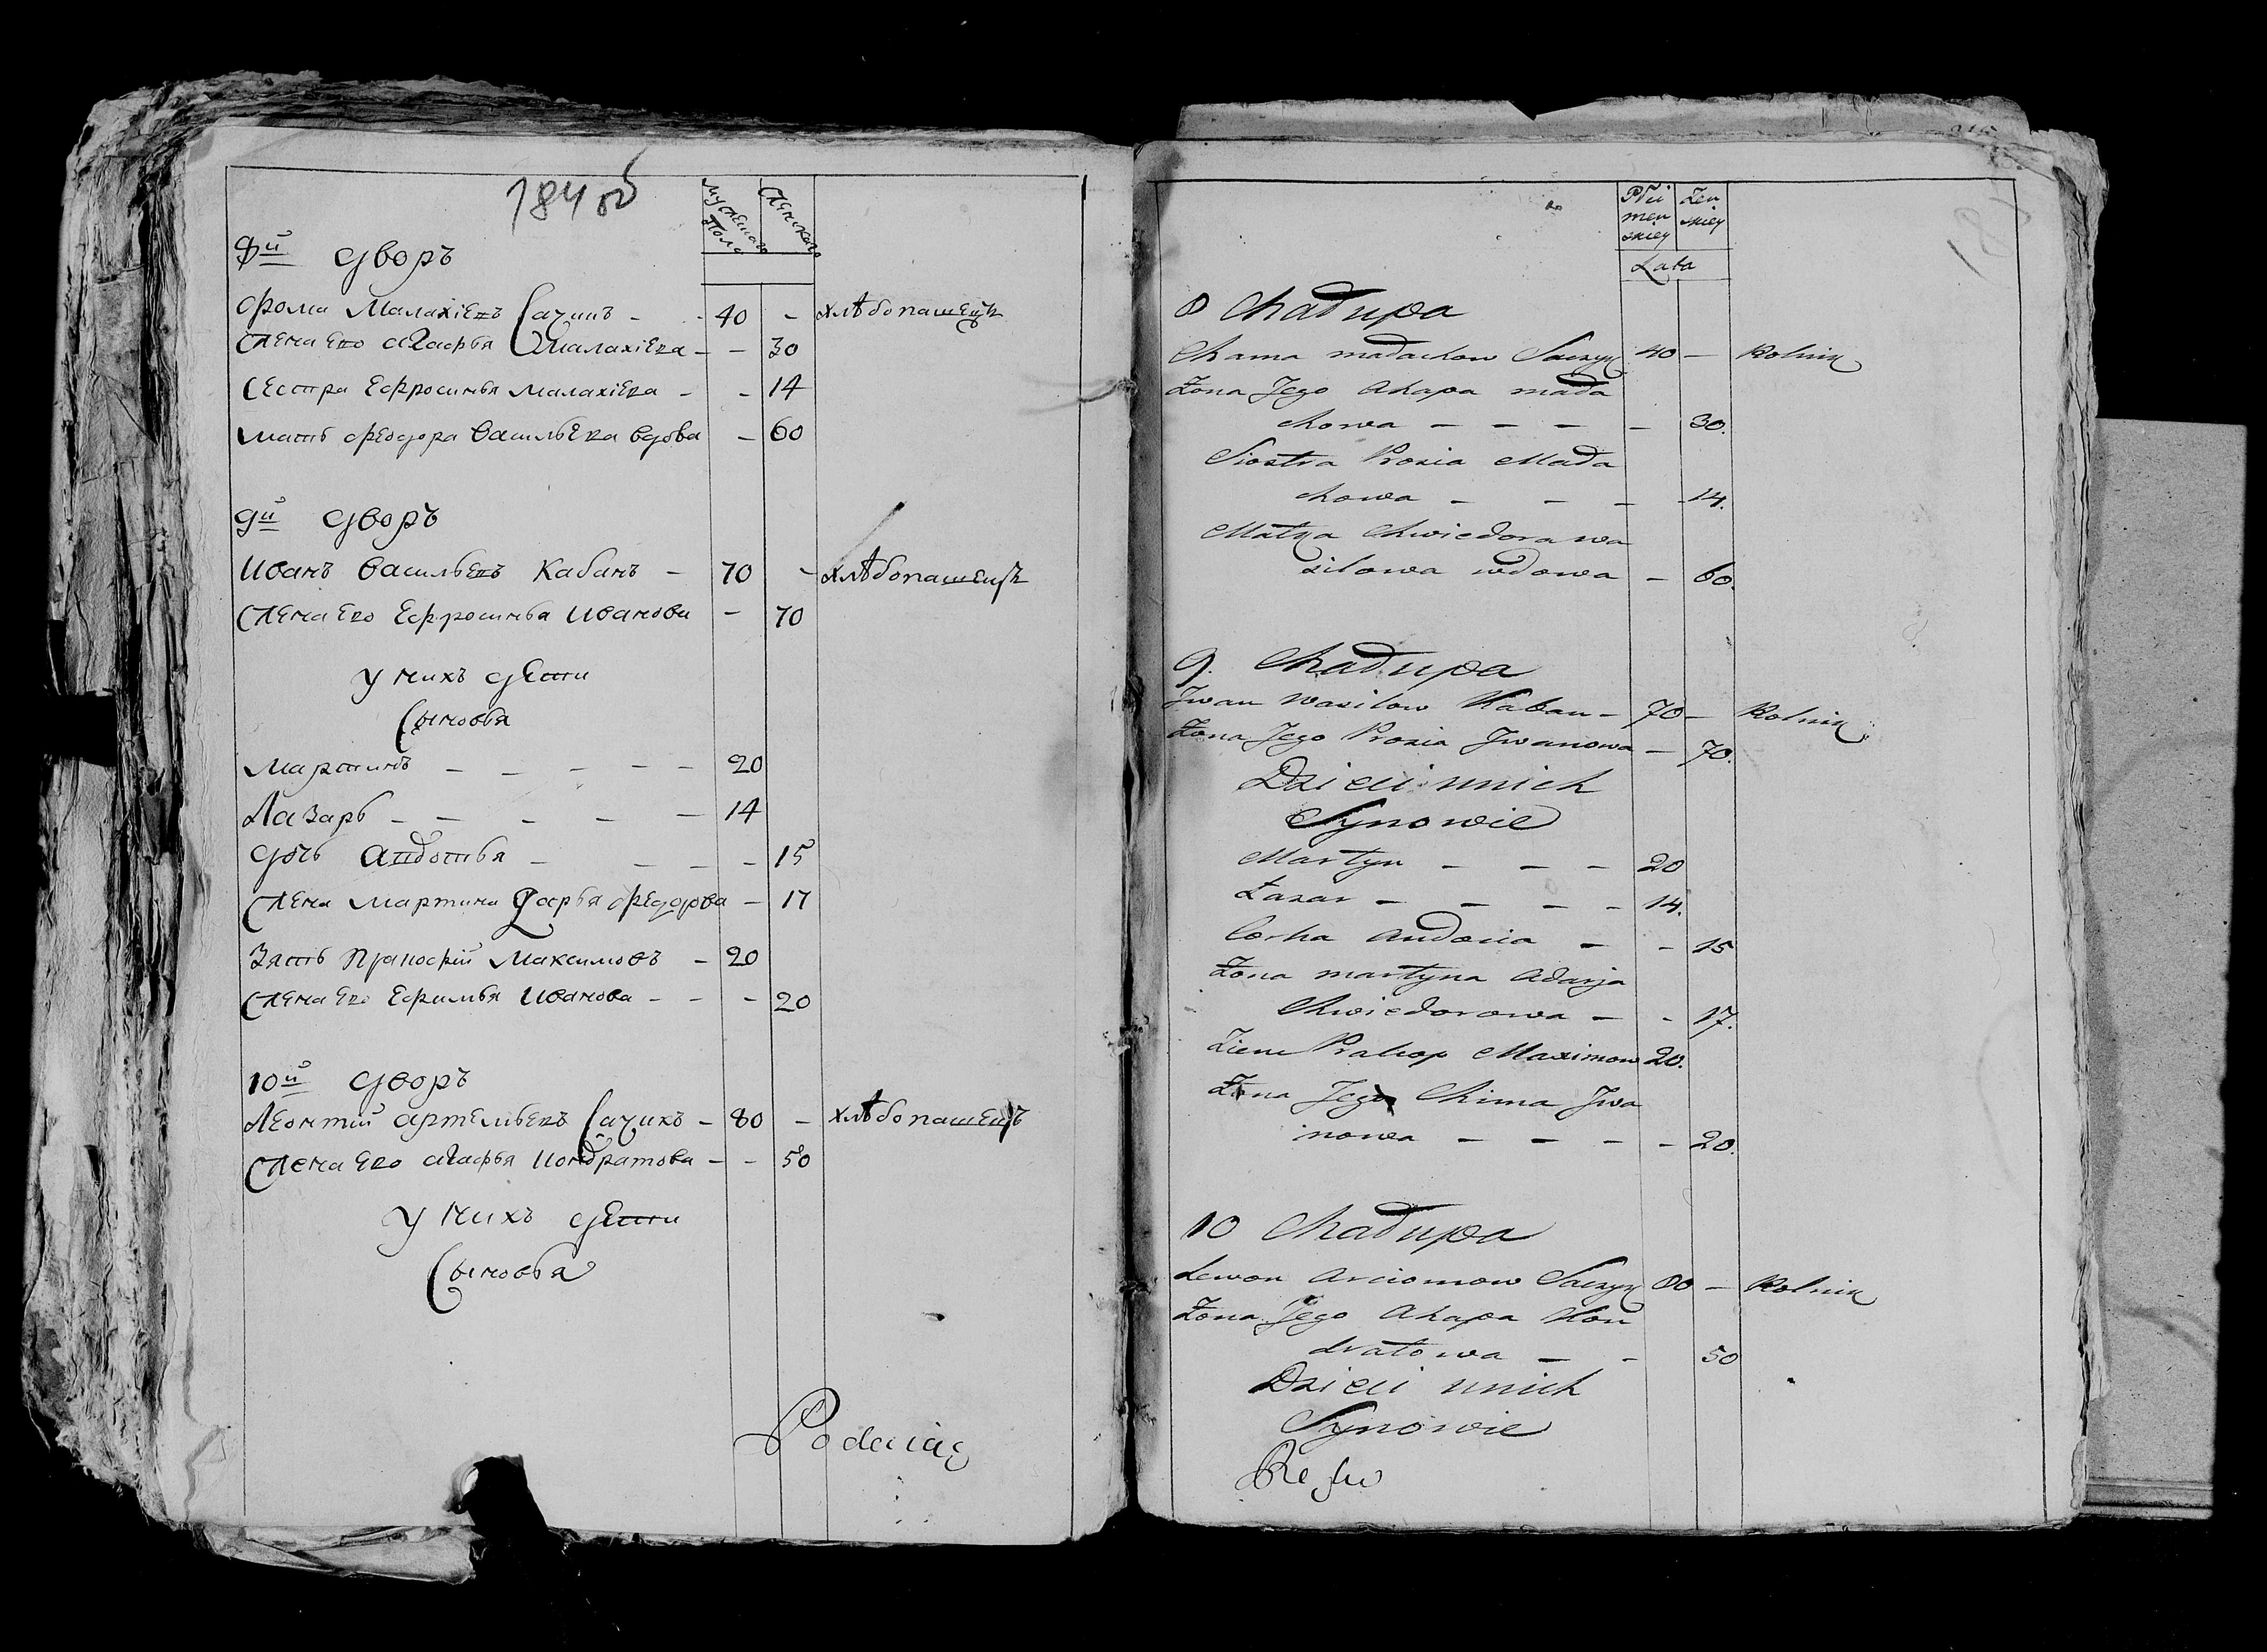 184 об
мужескаго
пола
женскаго
8й дворъ
Фома Малахіевъ Сачикъ - 40 - хлѣбопашецъ
Жена Его Агафья Малахіева - - 30
Сестра Ефросинья Малахіева - - 14
Мать Феодора Васильева вдова - 60
9й дворъ
Иванъ Васильевъ Кабанъ - 70 - хлѣбопашецъ
Жена Его Ефросинья Иванова - 70
У нихъ дети
Сыновья
Мартинъ - - - - - 20
Лазарь - - - - - 14
Дочь Авдотья - - - - 15
Жена Мартина Дарья Федорова - 17
Зять Пракофій Максимовъ - 20
Жена Его Ефимья Иванова - - - 20
10й дворъ
Леонтій Артемьевъ Сачикъ - 80 - хлѣбопашецъ
Жена Его Агафья Кондратова - - 50
У нихъ дети
Сыновья
Płci
men
skiey
Żen
skiey
Lata
8 Chałupa
Chama Małachow Saczyk 40 - Rolnik
Żona Jego Ahapa Mała
chowa - - - - 30.
Siostra Prosia Mała
chowa - - - - 14.
Matka Chwiedora Wa
silowa wdowa - 60.
9. Chałupa
Jwan Wasilow Kaban - 70 - Rolnik
Żona Jego Prosia Jwanowa - 70.
Dzieci u nich
Synowie
Martyn - - - 20
Łazar - - - - 14.
Corka Audocia - - 15
Żona Martyna Adarja
Chwiedorowa - - 17.
Zienc Prakop Maximow 20.
Żona Jego Chima Jwa
nowa - - - - 20.
10 Chałupa
Lewon Arciomow Saczyk 80 - Rolnik
Żona Jego Ahapa Kon
dratowa - - 50
Dzieci u nich
Synowie